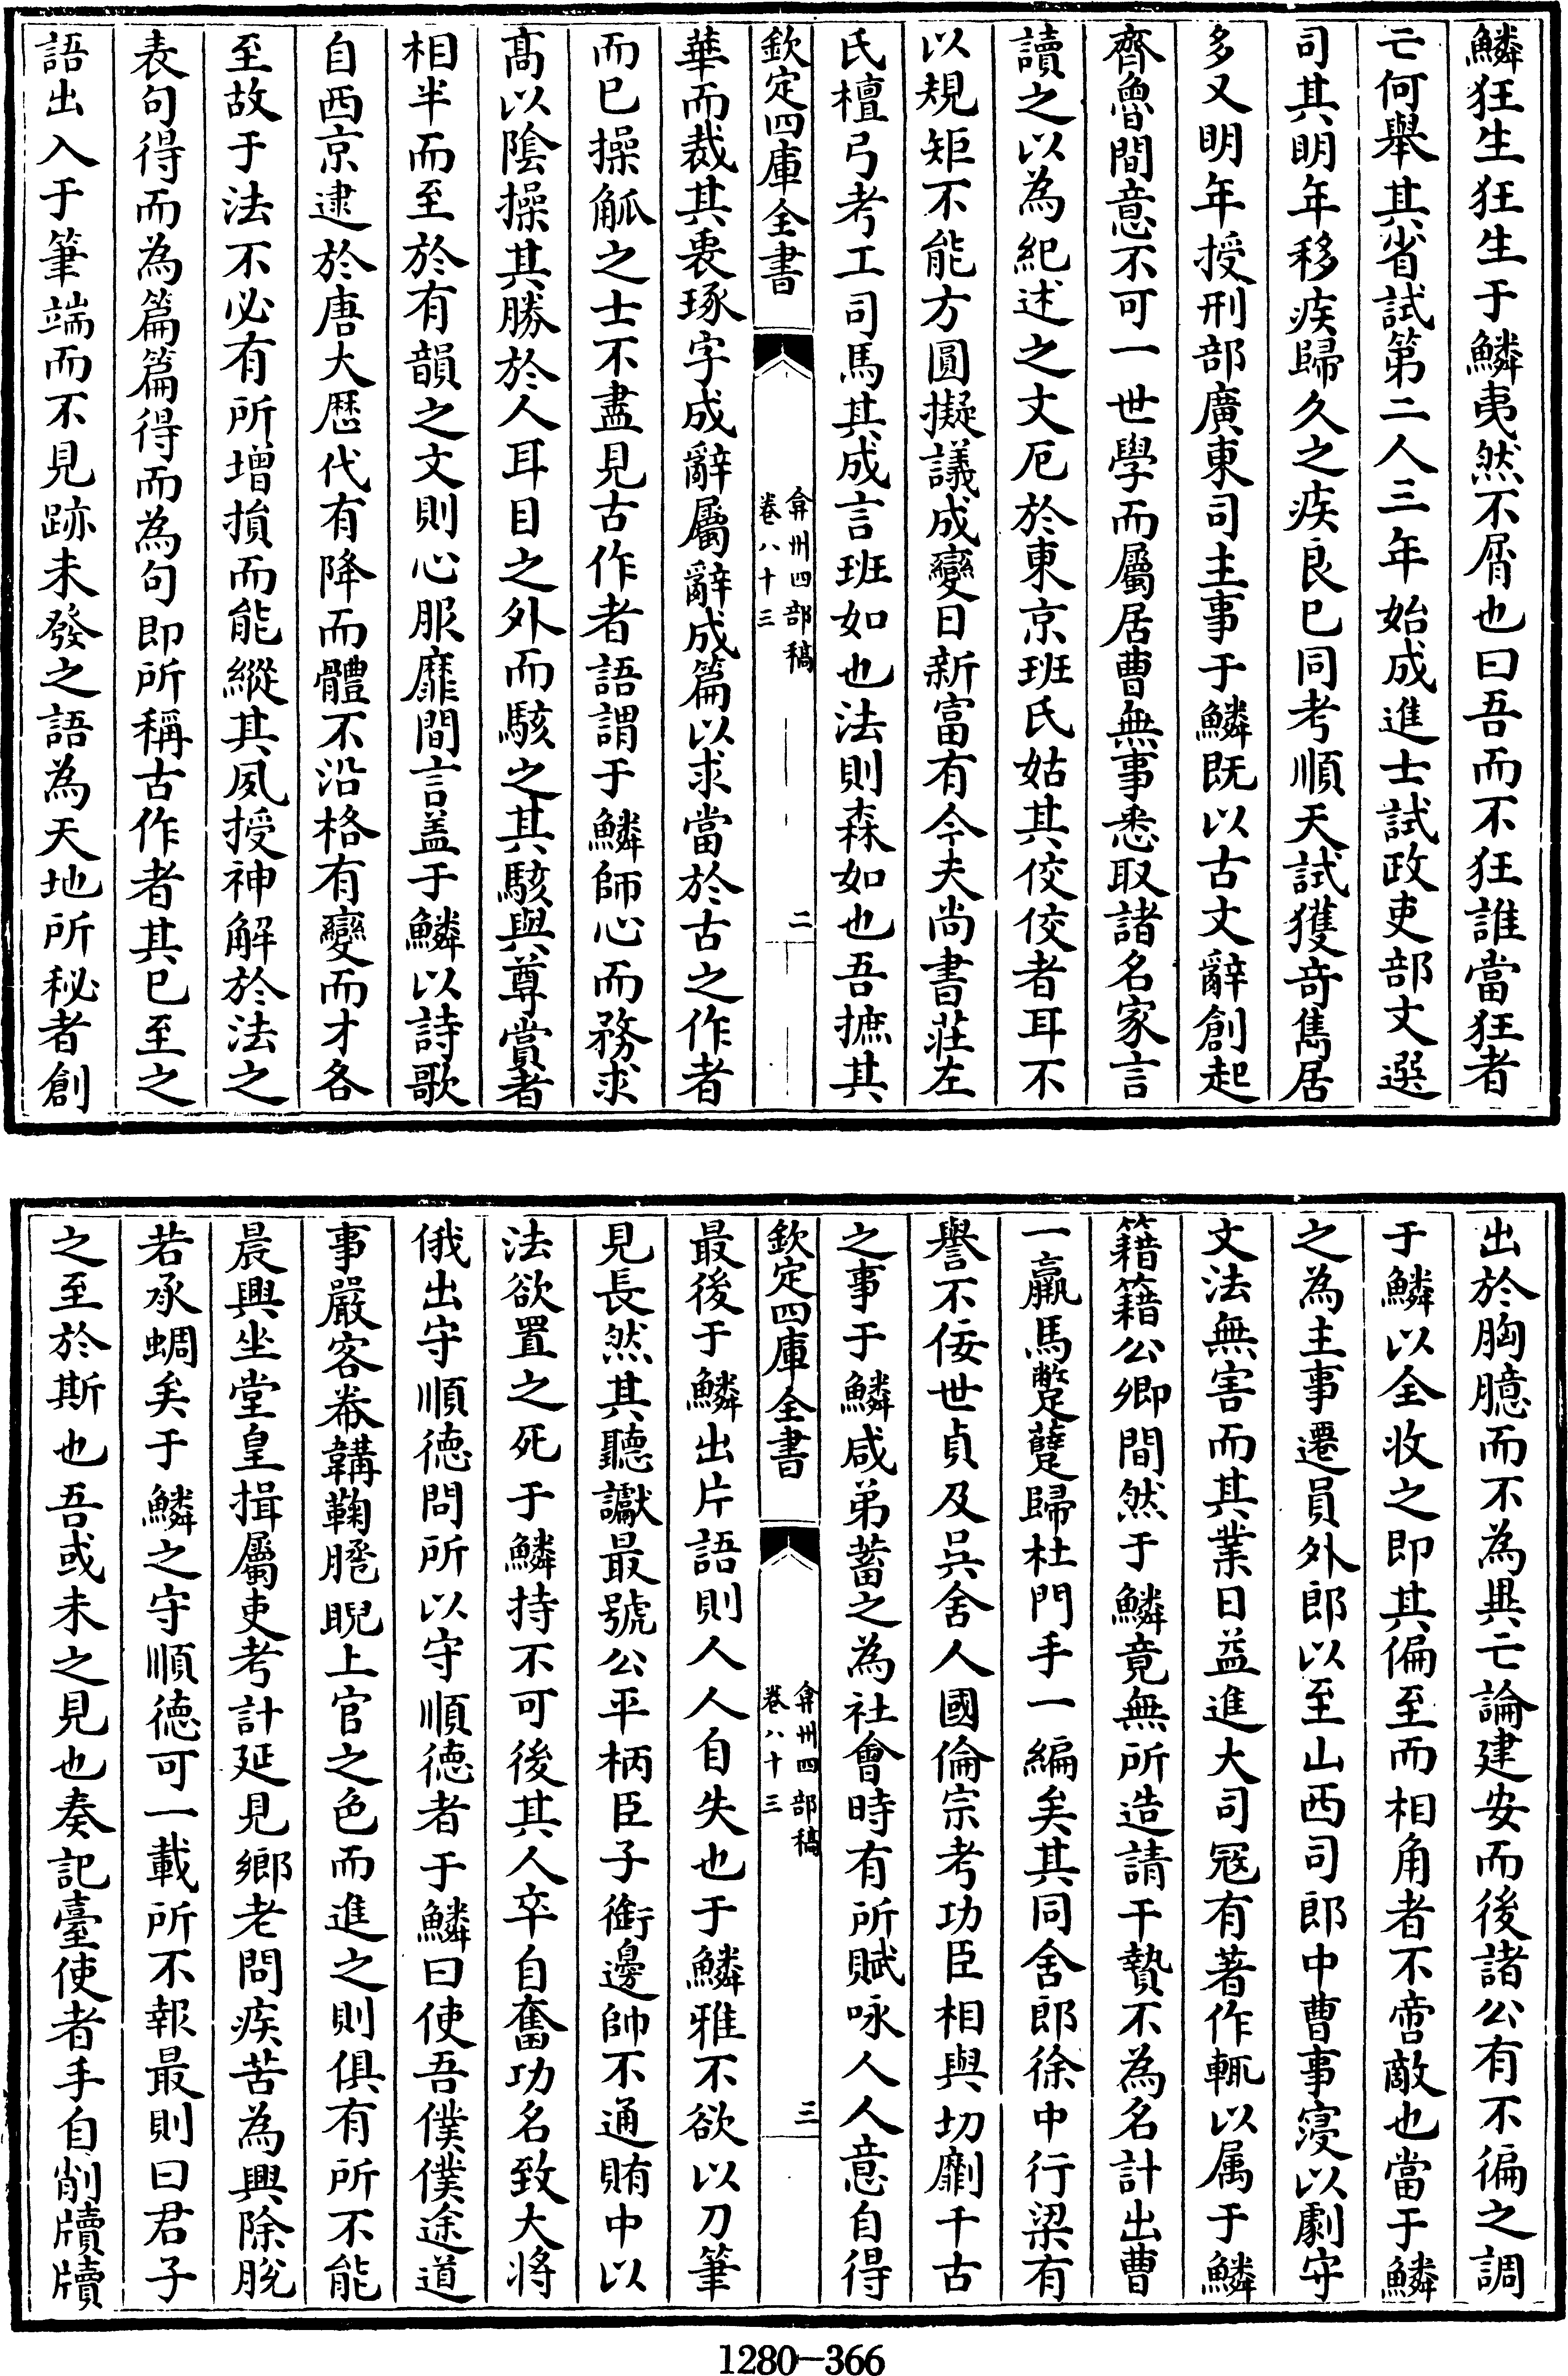 鱗狂生狂生于鱗夷然不屑也曰吾而不狂誰當狂者
亡何舉其省試第二人三年始成進士試政吏部文選
司其明年移疾歸久之疾良已同考順天試獲竒雋居
多又明年授刑部廣東司主事于鱗既以古文辭創起
齊魯間意不可一世學而屬居曹無事悉取諸名家言
讀之以為紀述之文厄於東京班氏姑其佼佼者耳不
以規矩不能方圓擬議成變日新富有今夫尚書莊左
氏檀弓考工司馬其成言班如也法則森如也吾摭其
欽定四庫全書
弇州四部稿
卷八十三
二
華而裁其衷琢字成辭屬辭成篇以求當於古之作者
而已操觚之士不盡見古作者語謂于鱗師心而務求
髙以陰操其勝於人耳目之外而駭之其駭與尊賞者
相半而至於有韻之文則心服靡間言盖于鱗以詩歌
自西京逮於唐大厯代有降而體不沿格有變而才各
至故于法不必有所增損而能縱其夙授神解於法之
表句得而為篇篇得而為句即所稱古作者其已至之
語出入于筆端而不見跡未發之語為天地所秘者創
出於胸臆而不為異亡論建安而後諸公有不徧之調
于鱗以全收之即其偏至而相角者不啻敵也當于鱗
之為主事遷員外郎以至山西司郎中曹事寖以劇守
文法無害而其業日益進大司冦有著作輒以属于鱗
籍籍公卿間然于鱗竟無所造請干贄不為名計出曹
一羸馬蹩躠歸杜門手一編矣其同舍郎徐中行梁有
譽不佞世貞及呉舍人國倫宗考功臣相與切劘千古
之事于鱗咸弟蓄之為社會時有所賦咏人人意自得
欽定四庫全書
弇州四部稿
卷八十三
三
最後于鱗出片語則人人自失也于鱗雅不欲以刀筆
見長然其聽讞最號公平柄臣子銜邊帥不通賄中以
法欲置之死于鱗持不可後其人卒自奮功名致大将
俄出守順徳問所以守順徳者于鱗曰使吾僕僕途道
事嚴客帣韝鞠䠆睨上官之色而進之則俱有所不能
晨興坐堂皇揖屬吏考計延見鄉老問疾苦為興除脫
若承蜩矣于鱗之守順徳可一載所不報最則曰君子
之至於斯也吾或未之見也奏記臺使者手自削牘牘
1280-366